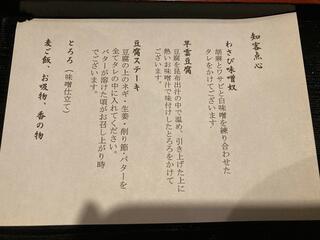 知客点心
わさび味噌奴
胡麻とワサビと白味噌を練り合わせた
タレをかけてございます。
早雲豆腐
豆腐を昆布出汁の中で温め、引き上げた上に
熱いお味噌汁で味付けしたとろろをかけて
ございます。
豆腐ステーキ
豆腐の上のネギ・生姜・削り節・バターを
全てタレの中に入れてください。
バターが溶けた頃がお召し上がり時
でございます。
とろろ（味噌仕立て）
麦ご飯、お吸物、香の物